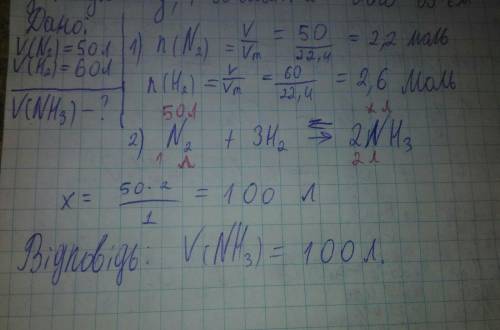 Дано:
V(N₂)=50л
V(H₂)=60л
V(NH₃)-?
1) n(N₂) = V/Vm = 50/22,4 = 2,2 моль
n(H₂) = V/Vm = 60/22,4 = 2,6 моль
50л x л
2) N₂ + 3H₂ ⇄ 2NH₃
1 л 2 л
x = 50·2/1 = 100 л
Відповідь: V(NH₃) = 100 л.